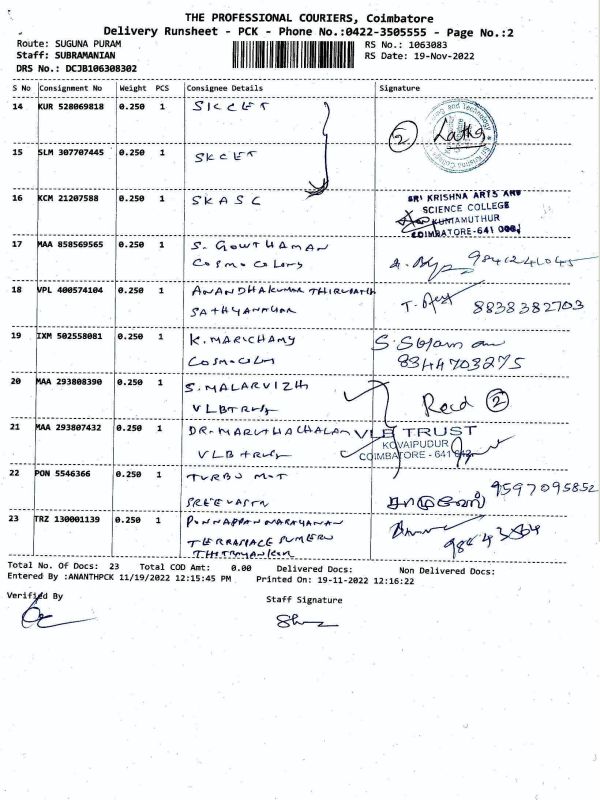 THE PROFESSIONAL COURIERS, Coimbatore
Delivery Runsheet - PCK - Phone No.:0422-3505555 - Page No.:2
Route: SUGUNA PURAM
RS No.: 1063083
Staff: SUBRAMANIAN
RS Date: 19-Nov-2022
DRS No.: DCJB106308302
S No Consignment No Weight PCS Consignee Details Signature
14 KUR 528069818 0.250 1 SKCET
② Latha
15 SLM 307707445 0.250 1 SKCET
16 KCM 21207588 0.250 1 SKASC
SRI KRISHNA ARTS AND
SCIENCE COLLEGE
KUNIAMUTHUR
COIMBATORE-641 008
17 MAA 858569565 0.250 1 S. GOWTHAMAN
COSMO COLONY
9841241045
18 VPL 400574104 0.250 1 ANANDHAKUMAR
8838382703
19 IXM 502558081 0.250 1 K. MARICHAMY
8344703275
20 MAA 293808390 0.250 1 S. MALARVIZH
VLB TRUST
Recd ②
21 MAA 293807432 0.250 1 DR. MARUTHACHALAM
VLB TRUST
VLB TRUST
KOVAIPUDUR
COIMBATORE - 641 042
22 PON 5546366 0.250 1
9597095852
23 TRZ 130001139 0.250 1 PONNAPPAN NARAYANAN
Total No. Of Docs: 23 Total COD Amt: 0.00 Delivered Docs: Non Delivered Docs:
Entered By :ANANTHPCK 11/19/2022 12:15:45 PM Printed On: 19-11-2022 12:16:22
Verified By
Staff Signature